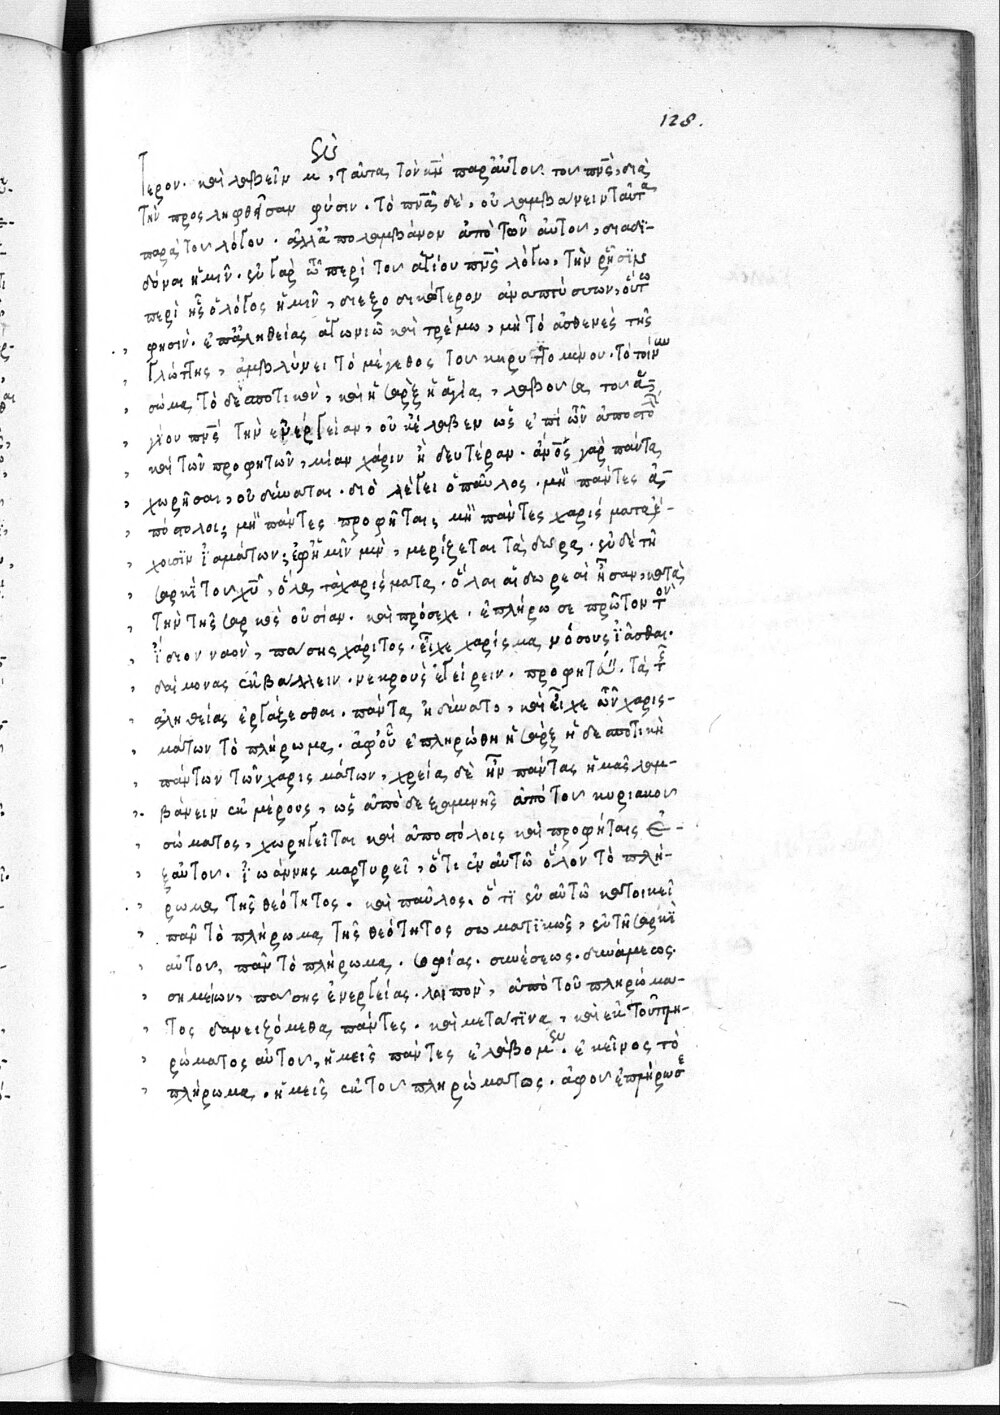 128.
τερον· καὶ λαβεῖν μ, ταῦτα τὸν κ̅ν̅ παρ' αὐτοῦ τοῦ πν̅ς̅, διὰ
τὴν προσληφθεῖσαν φύσιν· τὸ πν̅α̅ δὲ, οὐ λαμβάνειν ταῦτα
παρὰ τοῦ λόγου· ἀλλ' ἀπολαμβάνον ἀπὸ τῶν αὐτοῦ, διαδι-
δόναι ἡμῖν· ἐν γὰρ τῶ περὶ τοῦ ἁγίου πν̅ς̅ λόγω, τὴν ῥῆσιν
περὶ ἧς ὁ λόγος ἡμῖν, διεξοδικώτερον ἀναπτύσσων, οὕτω
φησίν· ἐπ' ἀληθείας ἀγωνιῶ καὶ τρέμω, μὴ τὸ ἀσθενὲς τῆς
γλώττης, ἀμβλύνει τὸ μέγεθος τοῦ κηρυττομένου· τὸ τοίνυν
σῶμα τὸ δεσποτικὸν, καὶ ἡ σὰρξ ἡ ἁγία, λαβοῦσα τοῦ ἁ-
γίου πν̅ς̅ τὴν ἐνέργειαν, οὐκ ἔλαβεν ὡς ἐπὶ τῶν ἀποστόλ
καὶ τῶν προφητῶν, μίαν χάριν ἢ δευτέραν· ἄν̅ο̅ς̅ γὰρ πάντα
χωρῆσαι, οὐ δύναται· διὸ λέγει ὁ παῦλος· μὴ πάντες ἀ-
πόστολοι; μὴ πάντες προφῆται; μὴ πάντες χαρίσματα ἔ-
χουσιν ἰαμάτων; ἐφ' ἡμῖν μὲν, μερίζεται τὰ δῶρα· ἐν δὲ τῆ
σαρκὶ τοῦ χ̅υ̅, ὅλα τὰ χαρίσματα· ὅλαι αἱ δωρεαὶ ἦσαν, κατὰ
τὴν τῆς σαρκὸς οὐσίαν· καὶ πρόσεχε· ἐπλήρωσε πρῶτον τὸν
ἴδιον ναὸν, πάσης χάριτος· εἶχε χάρισμα νόσους ἰᾶσθαι·
δαίμονας ἐκβάλλειν· νεκροὺς ἐγείρειν· προφητῶν· τὰ τῆς
ἀληθείας ἐργάζεσθαι· πάντα ἠδύνατο, καὶ εἶχε τῶν χαρισ-
μάτων τὸ πλήρωμα· ἀφ' οὗ ἐπληρώθη ἡ σὰρξ ἡ δεσποτικὴ
πάντων τῶν χαρισμάτων, χρεία δὲ ἦν πάντας ἡμᾶς λαμ-
βάνειν ἐκ μέρους, ὡς ἀπὸ δεξαμενῆς ἀπὸ τοῦ κυριακοῦ
σώματος, χωρηγεῖται καὶ ἀποστόλοις καὶ προφήταις ἐ-
ξ αὐτοῦ· ἰωάννης μαρτυρεῖ, ὅτι ἐν αὐτῶ ὅλον τὸ πλή-
ρωμα τῆς θεότητος· καὶ παῦλος· ὅτι ἐν αὐτῶ κατοικεῖ
πᾶν τὸ πλήρωμα τῆς θεότητος σωματικῶς, ἐν τῆ σαρκὶ
αὐτοῦ, πᾶν τὸ πλήρωμα· σοφίας· συνέσεως· δυνάμεως·
σημείων, πάσης ἐνεργείας· λοιπὸν, ἀπὸ τοῦ πληρώμα-
τος δανειζόμεθα πάντες· καὶ μετά τινα, καὶ ἐκ τοῦ πλη-
ρώματος αὐτοῦ, ἡμεῖς πάντες ἐλάβομεν· ἐκεῖνος τὸ
πλήρωμα· ἡμεῖς ἐκ τοῦ πληρώματος· ἀφ' οὗ ἐπλήρωσε